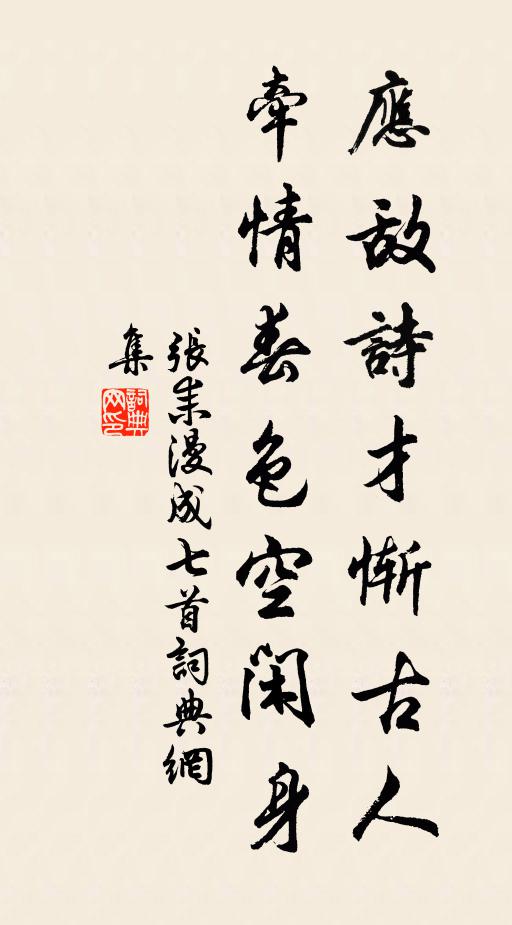 應敵詩才慚古人
牽情春色空閑身
張耒漫成七首詞典網
集
詞典
网印